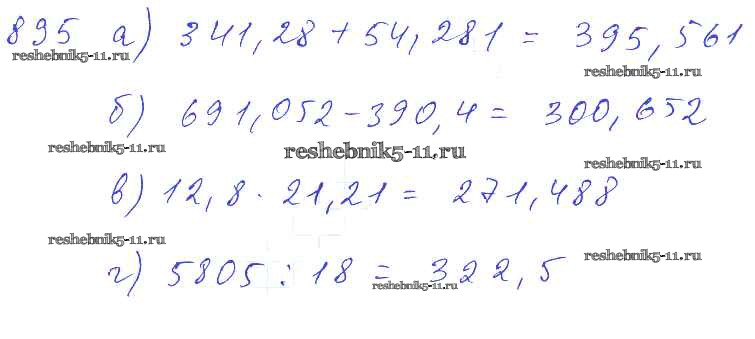 895 а) 341,28 + 54,281 = 395,561
reshebnik5-11.ru
reshebnik5-11.ru
б) 691,052 - 390,4 = 300,652
reshebnik5-11.ru
reshebnik5-11.ru
reshebnik5-11.ru
в) 12,8 · 21,21 = 271,488
reshebnik5-11.ru
reshebnik5-11.ru
г) 5805 : 18 = 322,5
reshebnik5-11.ru